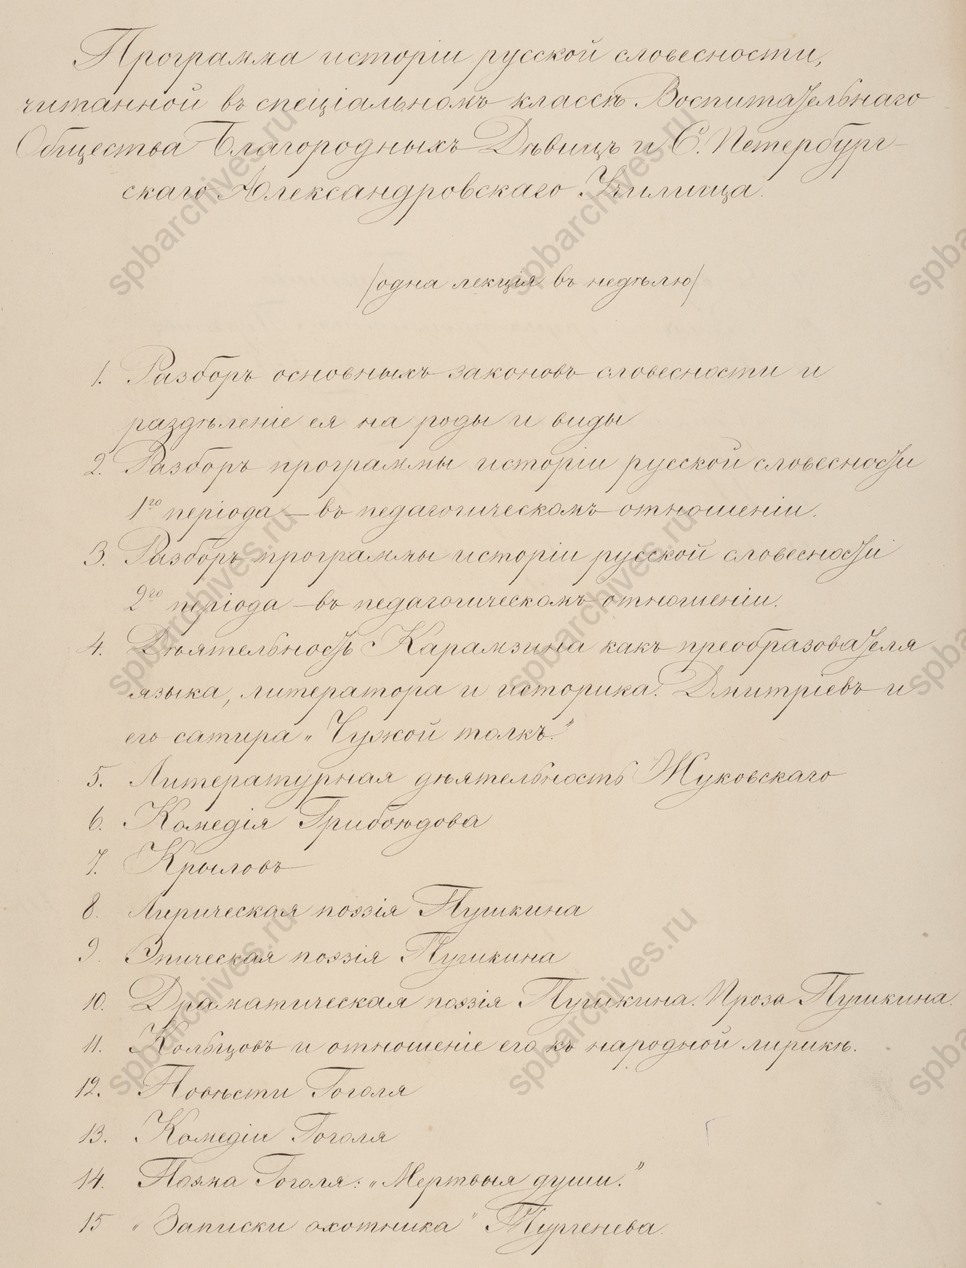 Программа исторіи русской словесности,
читанной въ спеціальномъ классѣ Воспитательнаго
Общества Благородныхъ Дѣвицъ и С. Петербург-
скаго Александровскаго Училища.
/одна лекція въ недѣлю/
1. Разборъ основныхъ законовъ словесности и
раздѣленіе ея на роды и виды
2. Разборъ программы исторіи русской словесности
1го періода — въ педагогическомъ отношеніи.
3. Разборъ программы исторіи русской словесности
2го періода — въ педагогическомъ отношеніи.
4. Дѣятельность Карамзина какъ преобразователя
языка, литератора и историка. Дмитріевъ и
его сатира „Чужой толкъ."
5. Литературная дѣятельность Жуковскаго
6. Комедія Грибоѣдова
7. Крыловъ
8. Лирическая поэзія Пушкина
9. Эпическая поэзія Пушкина
10. Драматическая поэзія Пушкина. Проза Пушкина.
11. Кольцовъ и отношеніе его къ народной лирикѣ.
12. Повѣсти Гоголя
13. Комедіи Гоголя
14. Поэма Гоголя: „Мертвыя души."
15 „Записки охотника" Тургенева.
spbarchives.ru